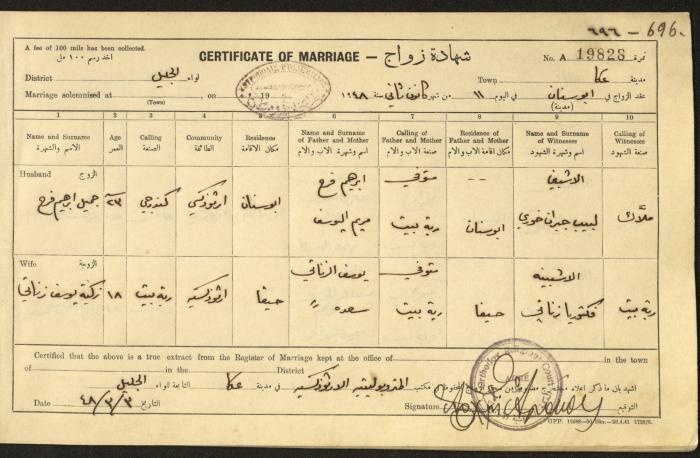 ٦٩٦ - 696.
A fee of 100 mils has been collected.
اخذ رسم ١٠٠ مل
CERTIFICATE OF MARRIAGE — شهادة زواج
No. A 19828 نمرة
District الجليل لواء
Town عكا مدينة
Marriage solemnised at (Town) on 19
عقد الزواج في ابوسنان (مدينة) في اليوم ١١ من شهر كانون ثاني سنة ١٩٤٨
1 2 3 4 5 6 7 8 9 10
Name and Surname الاسم والشهرة
Age العمر
Calling الصنعة
Community الطائفة
Residence مكان الاقامة
Name and Surname of Father and Mother اسم وشهرة الاب والام
Calling of Father and Mother صنعة الاب والام
Residence of Father and Mother مكان اقامة الاب والام
Name and Surname of Witnesses اسم وشهرة الشهود
Calling of Witnesses صنعة الشهود
Husband الزوج
جميل ابراهيم فرح ٢٣ كندرجي ارثوذكسي ابوسنان
ابرهيم فرح متوفي -- الاشبين
مريم اليوسف ربة بيت ابوسنان لبيب جبران خوري ملاّك
Wife الزوجة
زكية يوسف زناتي ١٨ ربة بيت ارثوذكسيه حيفا
يوسف الزناتي متوفي الاشبينه
سعده " ربة بيت حيفا فكتوريا زناتي ربة بيت
Certified that the above is a true extract from the Register of Marriage kept at the office of in the town
of in the District
اشهد بان ما ذكر اعلاه مكتب المتروبوليتيه الارثوذكسيه في مدينة عكا التابعة للواء الجليل
Orthodox Religious Court
ACRE
Date ٤٨/٣/٣ التاريخ
Signature التوقيع